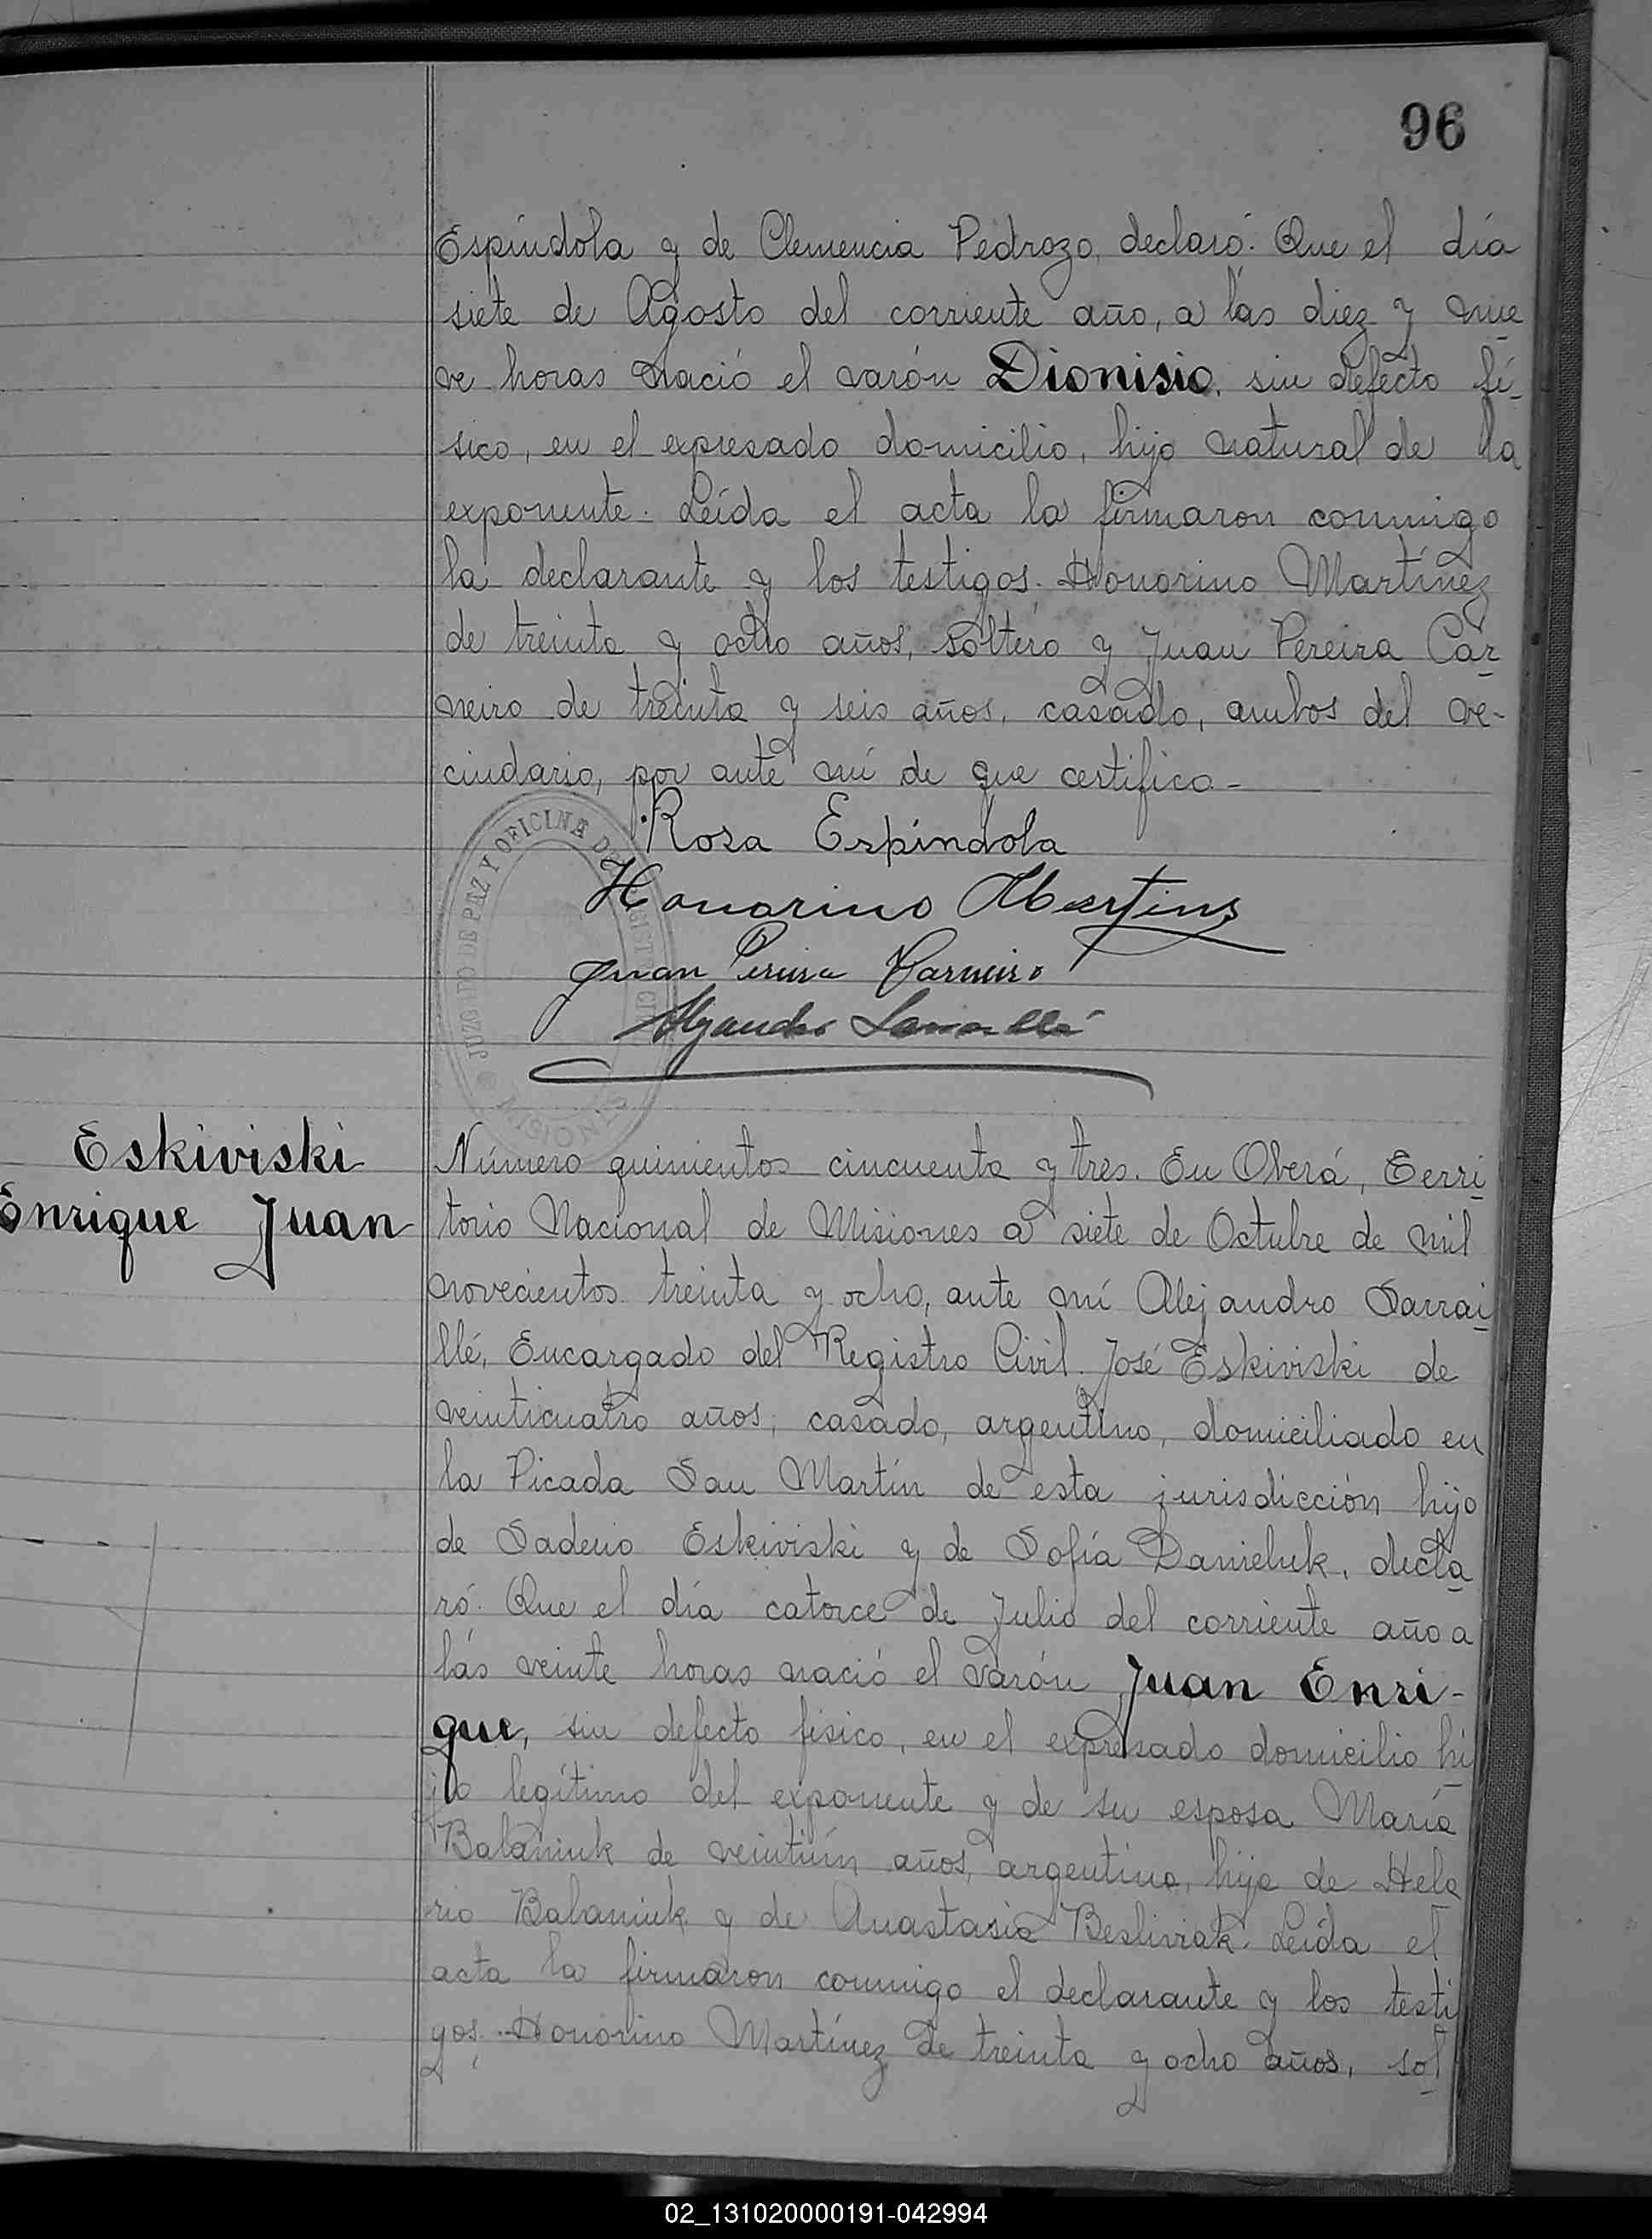 96
Espíndola y de Clemencia Pedrozo, declaró: Que el día
siete de Agosto del corriente año, a las diez y nue
ve horas nació el varón Dionisio, sin defecto fí-
sico, en el expresado domicilio, hijo natural de la
exponente. Leída el acta la firmaron conmigo
la declarante y los testigos. Honorino Martínez
de treinta y ocho años, soltero y Juan Pereira Car
neiro de treinta y seis años, casado, ambos del ve-
cindario, por ante mí de que certifico-
Rosa Espíndola
Honorino Martins
Juan Pereira Carneiro
Alejandro Sarraillé
JUZGADO DE PAZ Y OFICINA DEL REGISTRO CIVIL
MISIONES
Eskiviski
Enrique Juan
Número quinientos cincuenta y tres. En Oberá, Terri
torio Nacional de Misiones a siete de Octubre de mil
novecientos treinta y ocho, ante mí Alejandro Sarrai
llé, Encargado del Registro Civil. José Eskiviski de
veinticuatro años, casado, argentino, domiciliado en
la Picada San Martín de esta jurisdicción hijo
de Saderio Eskiviski y de Sofía Danieluk, decla
ró: Que el día catorce de Julio del corriente año a
las veinte horas nació el varón Juan Enri-
que, sin defecto físico, en el expresado domicilio hi
jo legítimo del exponente y de su esposa María
Balaniuk de veintiún años, argentina, hija de Hela
rio Balaniuk y de Anastasia Besliviak. Leída el
acta la firmaron conmigo el declarante y los testi
gos. Honorino Martínez de treinta y ocho años, sol
02_131020000191-042994